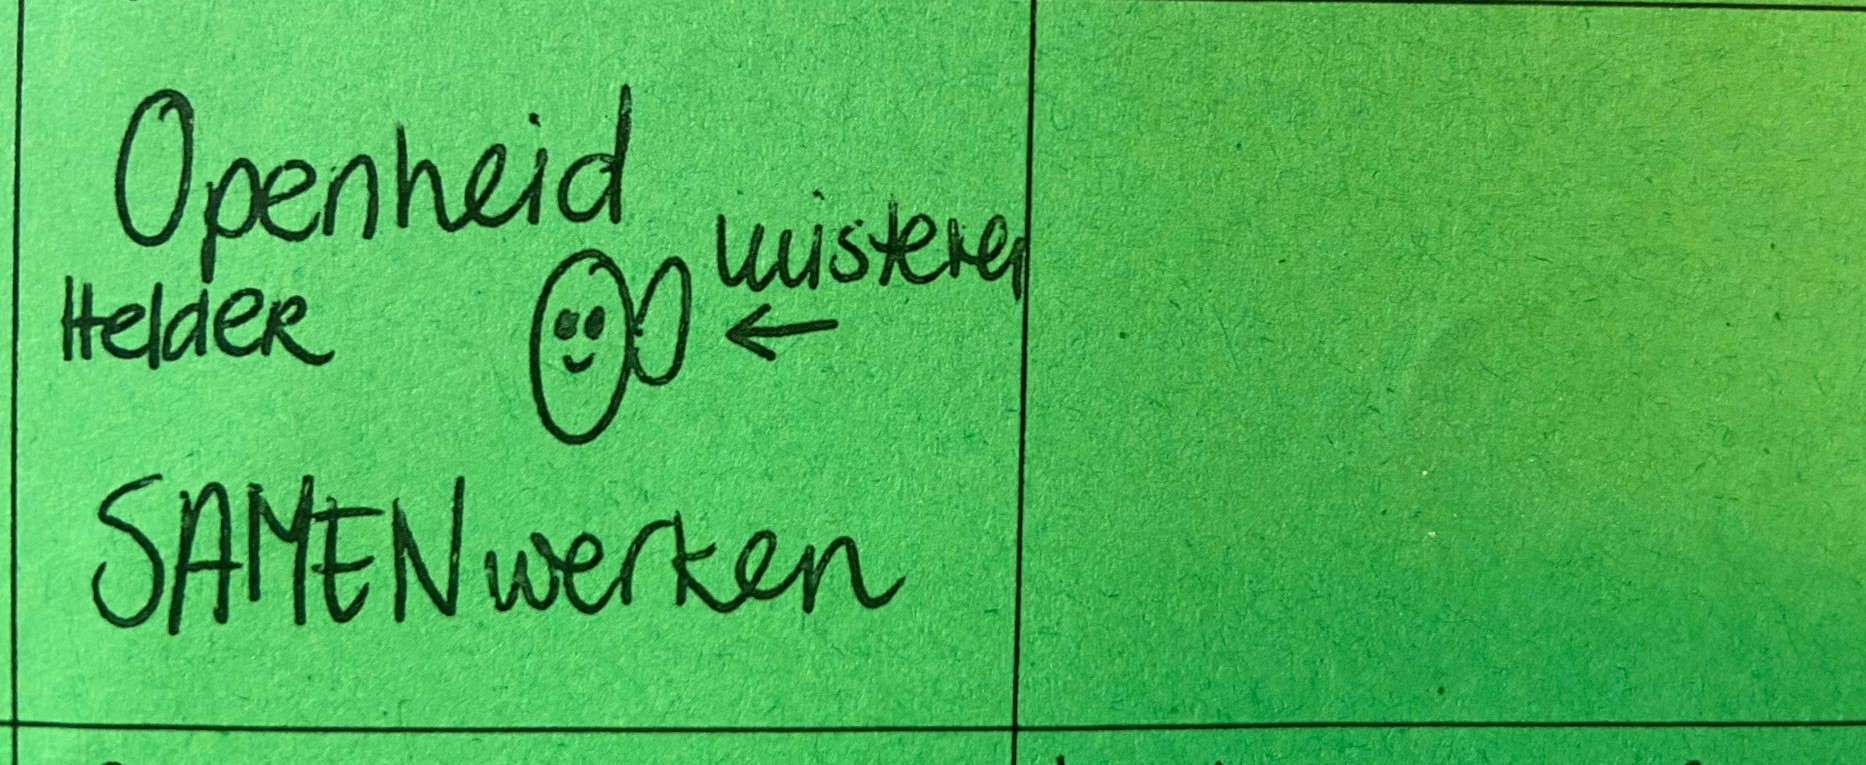 Openheid
luisteren
Helder
SAMENwerken